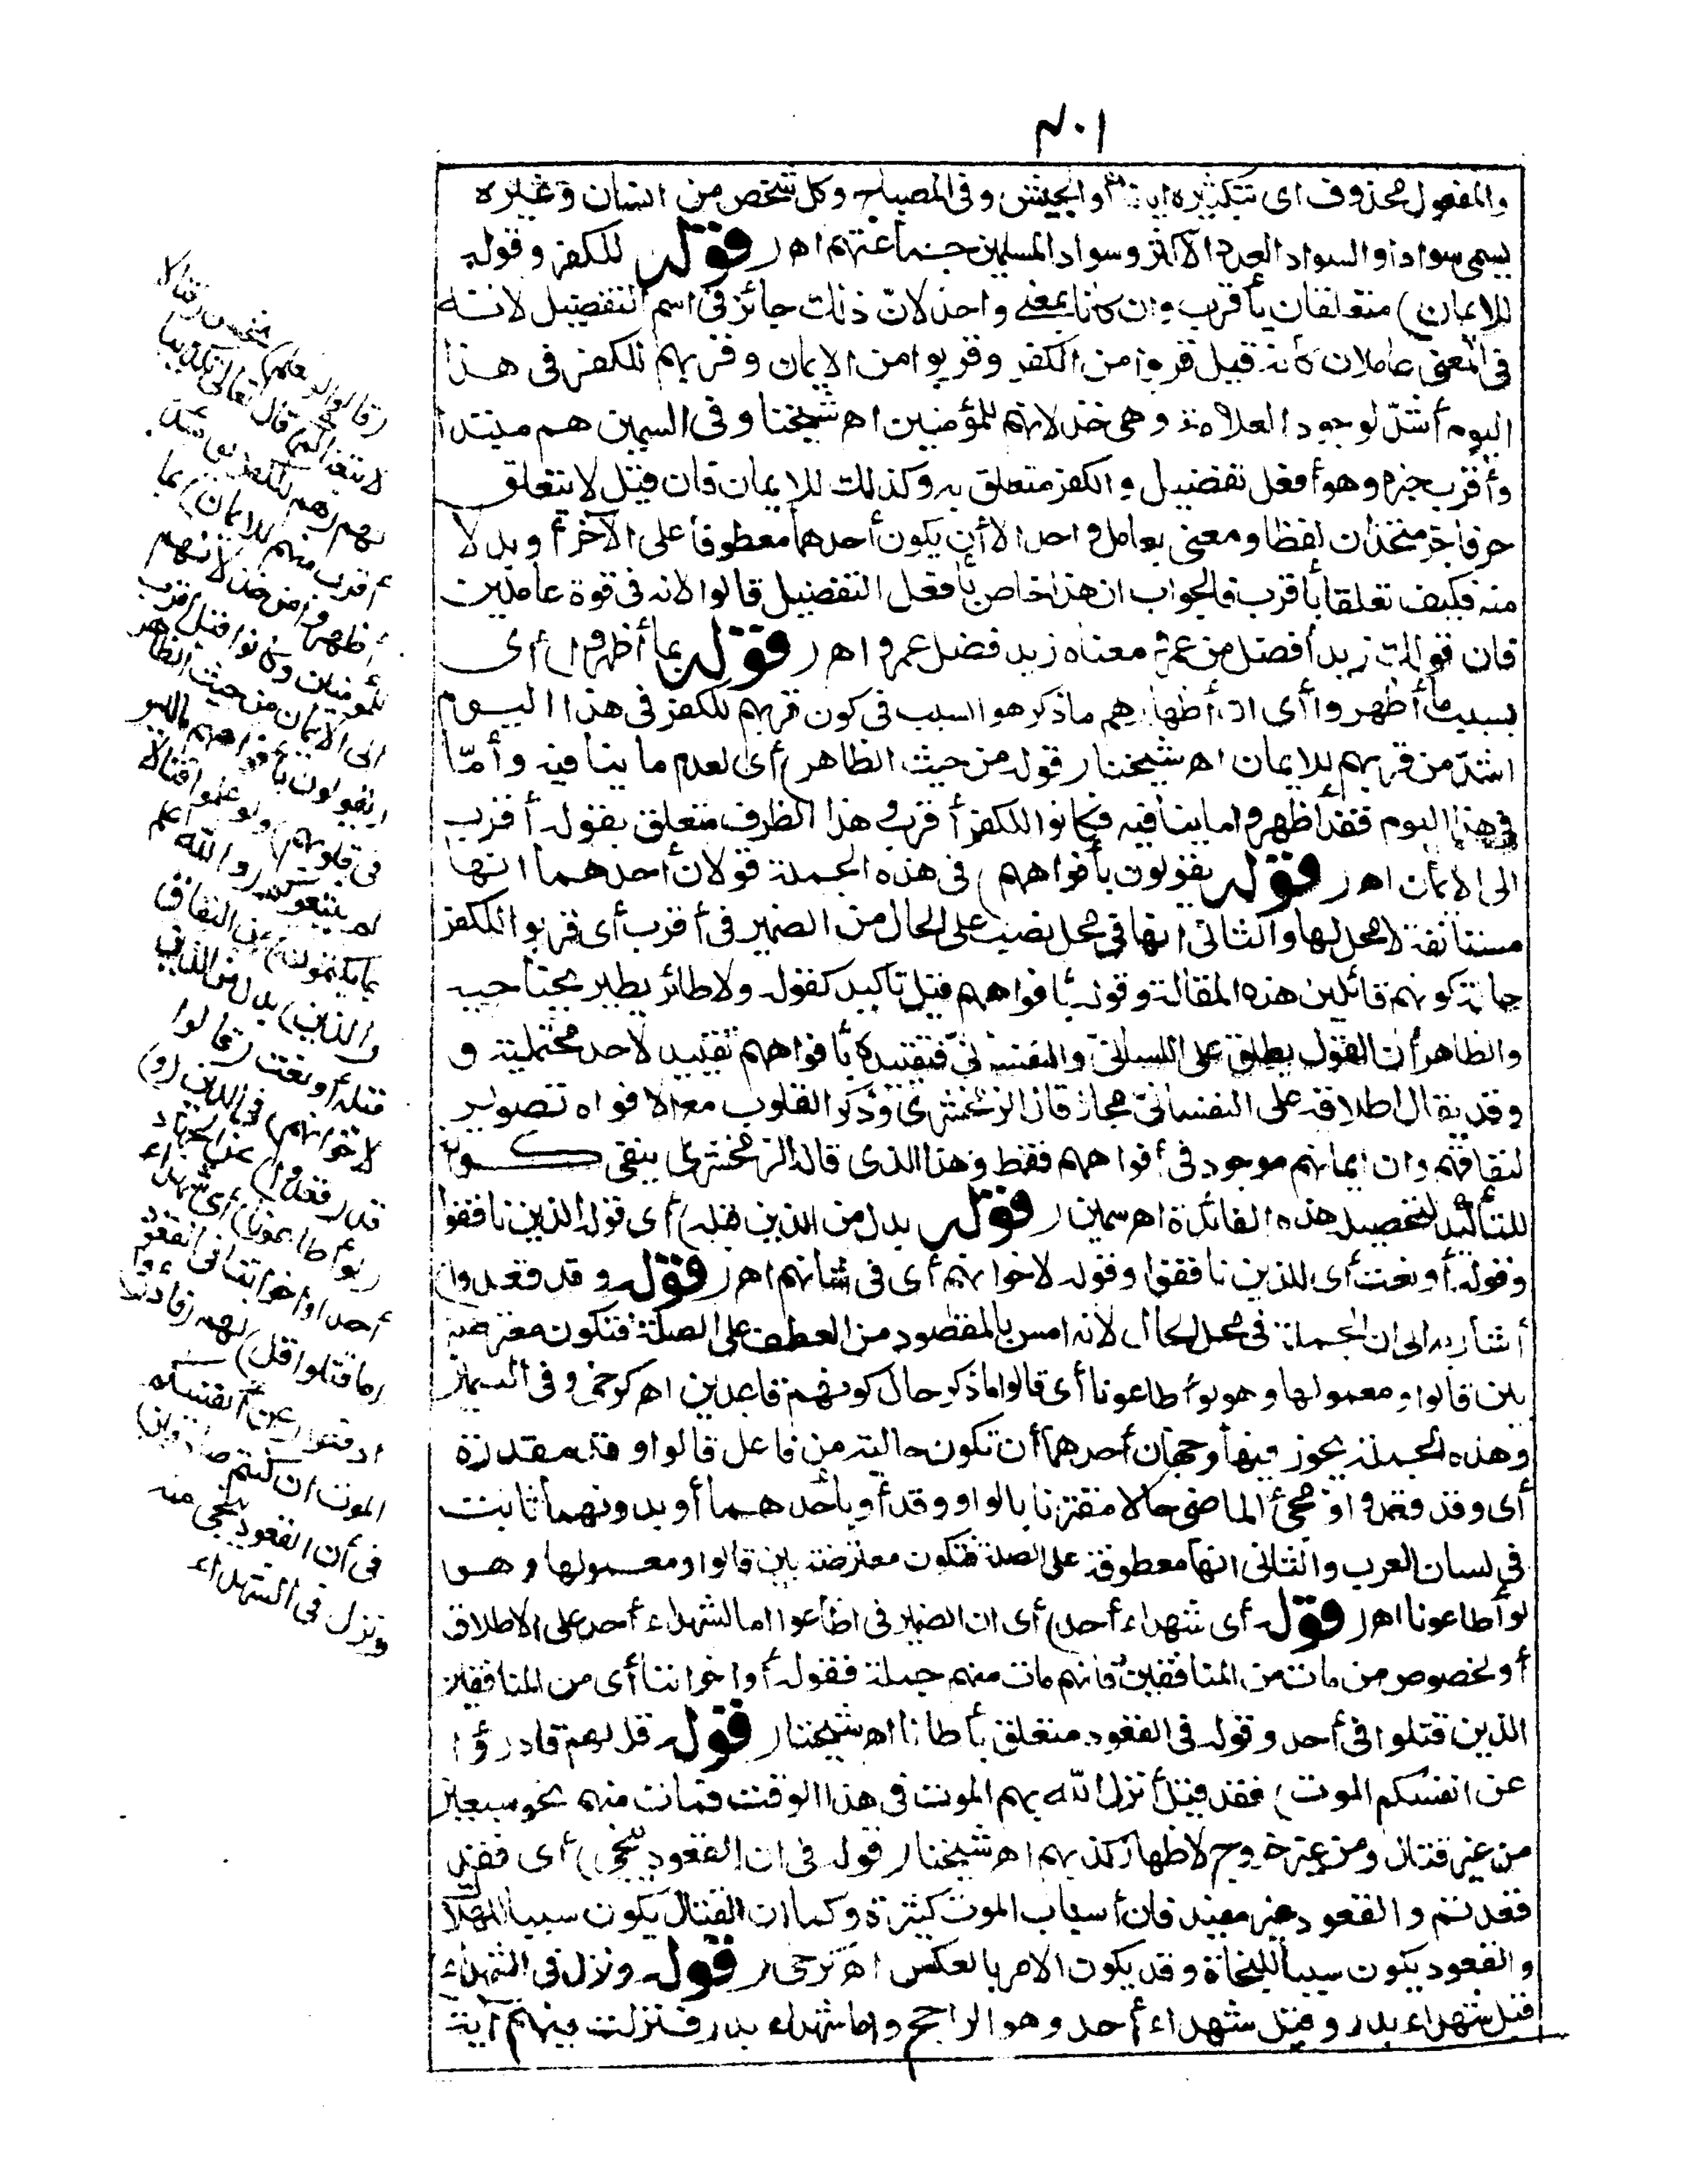 ٤٠١
والمفعول محذوف اى بتكثيره اياكم أو الجيش وفى المصباح وكل شخص من انسان وغيره
يسمى سوادا والسواد العدد الأكثر وسواد المسلمين جماعتهم اهـ (قوله للكفر وقوله
للايمان) متعلقان بأقرب وان كانا بمعنى واحد لانّ ذلك جائز فى اسم التفضيل لانه
فى المعنى عاملان كأنه قيل قربوا من الكفر وقربوا من الايمان وقربهم للكفر فى هذا
اليوم أشدّ لوجود العلامة وهى خذلانهم للمؤمنين اهـ شيخنا وفى السمين هم مبتدأ
وأقرب خبره وهو أفعل تفضيل والكفر متعلق به وكذلك للايمان فان قيل لا يتعلق
حرفا جر متحدان لفظا ومعنى بعامل واحد الا أن يكون أحدهما معطوفا على الآخر أو بدلا
منه فكيف تعلقا بأقرب فالجواب ان هذا خاص بأفعل التفضيل قالوا لانه فى قوة عاملين
فان قولك زيد أفضل من عمرو معناه زيد فضل عمرو اهـ (قوله بما أظهروا) أى
بسبب ما أظهروا أى اذ أظهارهم ما ذكر هو السبب فى كون قربهم للكفر فى هذا اليوم
اشدّ من قربهم للايمان اهـ شيخنا (قوله من حيث الظاهر) أى لعدم ما ينافيه وأمّا
فى هذا اليوم فقد أظهروا ما ينافيه فكانوا للكفر أقرب وهذا الظرف متعلق بقوله أقرب
الى الايمان اهـ (قوله يقولون بأفواههم) فى هذه الجملة قولان أحدهما انها
مستأنفة لا محل لها والثانى انها فى محل نصب على الحال من الضمير فى أقرب أى قربوا للكفر
حالة كونهم قائلين هذه المقالة وقوله بأفواههم قيل تأكيد كقوله ولا طائر يطير بجناحيه
والظاهر أن القول يطلق على اللسانىّ والنفسانىّ فتقييده بأفواههم تقييد لاحد محتمليه و
وقد يقال اطلاقه على النفسانىّ مجاز قال الزمخشرى وذكر القلوب مع الافواه تصوير
لنفاقهم وان ايمانهم موجود فى أفواههم فقط وهذا الذى قاله الزمخشرى ينفى كونه
للتأكيد لتحصيل هذه الفائدة اهـ سمين (قوله بدل من الذين قبله) أى قوله الذين نافقوا
وقوله أو نعت أى للذين نافقوا وقوله لاخوانهم أى فى شانهم اهـ (قوله وقد قعدوا)
أشار به الى ان الجملة فى محل الحال لانه امس بالمقصود من العطف على الصلة فتكون معترضة
بين قالوا ومعمولها وهو لو أطاعونا أى قالوا ما ذكر حال كونهم قاعدين اهـ كرخى وفى السمين
وهذه الجملة يجوز فيها وجهان أحدهما أن تكون حالية من فاعل قالوا وقد مقدرة
أى وقد قعدوا ومجئ الماضى حالا مقترنا بالواو وقد أو بأحدهما أو بدونهما ثابت
فى لسان العرب والثانى انها معطوفة على الصلة فتكون معترضة بين قالوا ومعمولها وهو
لو أطاعونا اهـ (قوله أى شهداء أحد) أى ان الضمير فى اطاعوا اما لشهداء أحد على الاطلاق
أو لخصوص من مات من المنافقين فانهم مات منهم جملة فقوله أو اخواننا أى من المنافقين
الذين قتلوا فى أحد وقوله فى القعود متعلق بأطاعونا اهـ شيخنا (قوله قل لهم فادرؤا
عن انفسكم الموت) فقد قيل أنزل الله بهم الموت فى هذا الوقت فمات منهم نحو سبعين
من غير قتال ومن غير خروج لاظهار كذبهم اهـ شيخنا (قوله فى ان القعود ينجى) أى فقد
قعدتم والقعود غير مفيد فان أسباب الموت كثيرة وكما ان القتال يكون سببا للهلاك
والقعود يكون سببا للنجاة وقد يكون الامر بالعكس اهـ كرخى (قوله ونزل فى الشهداء)
قيل شهداء بدر وقيل شهداء أحد وهو الراجح واما شهداء بدر فنزلت فيهم آية
(قالوا لو نعلم) نحسن (قتالا
لاتبعناكم) قال تعالى تكذيبا
لهم (هم للكفر يومئذ
أقرب منهم للايمان) بما
أظهروا من خذلانهم
للمؤمنين وكانوا قبل أقرب
الى الايمان من حيث الظاهر
(يقولون بأفواههم ما ليس
فى قلوبهم) ولو علموا قتالا
لم يتبعوكم (والله أعلم
بما يكتمون) من النفاق
(الذين) بدل من الذين
قبله أو نعت (قالوا
لاخوانهم) فى الدين (و)
قد (قعدوا) عن الجهاد
(لو أطاعونا) أى شهداء
أحد أو اخواننا فى القعود
(ما قتلوا قل) لهم (فادرؤا)
ادفعوا (عن أنفسكم
الموت ان كنتم صادقين)
فى أن القعود ينجى منه
ونزل فى الشهداء